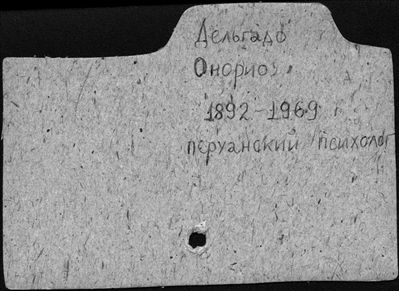 Дельгадо
Онорио
1892-1969
перуанский психолог